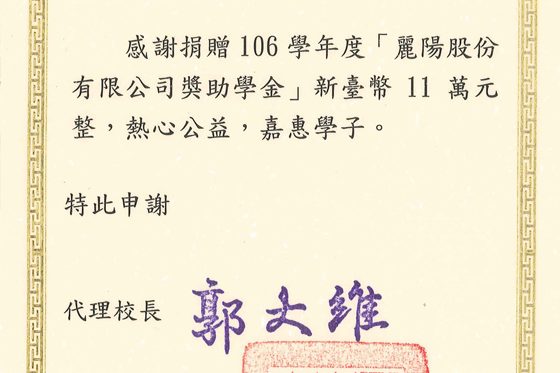 感謝捐贈106學年度「麗陽股份
有限公司獎助學金」新臺幣 11 萬元
整，熱心公益，嘉惠學子。
特此申謝
代理校長 郭大維